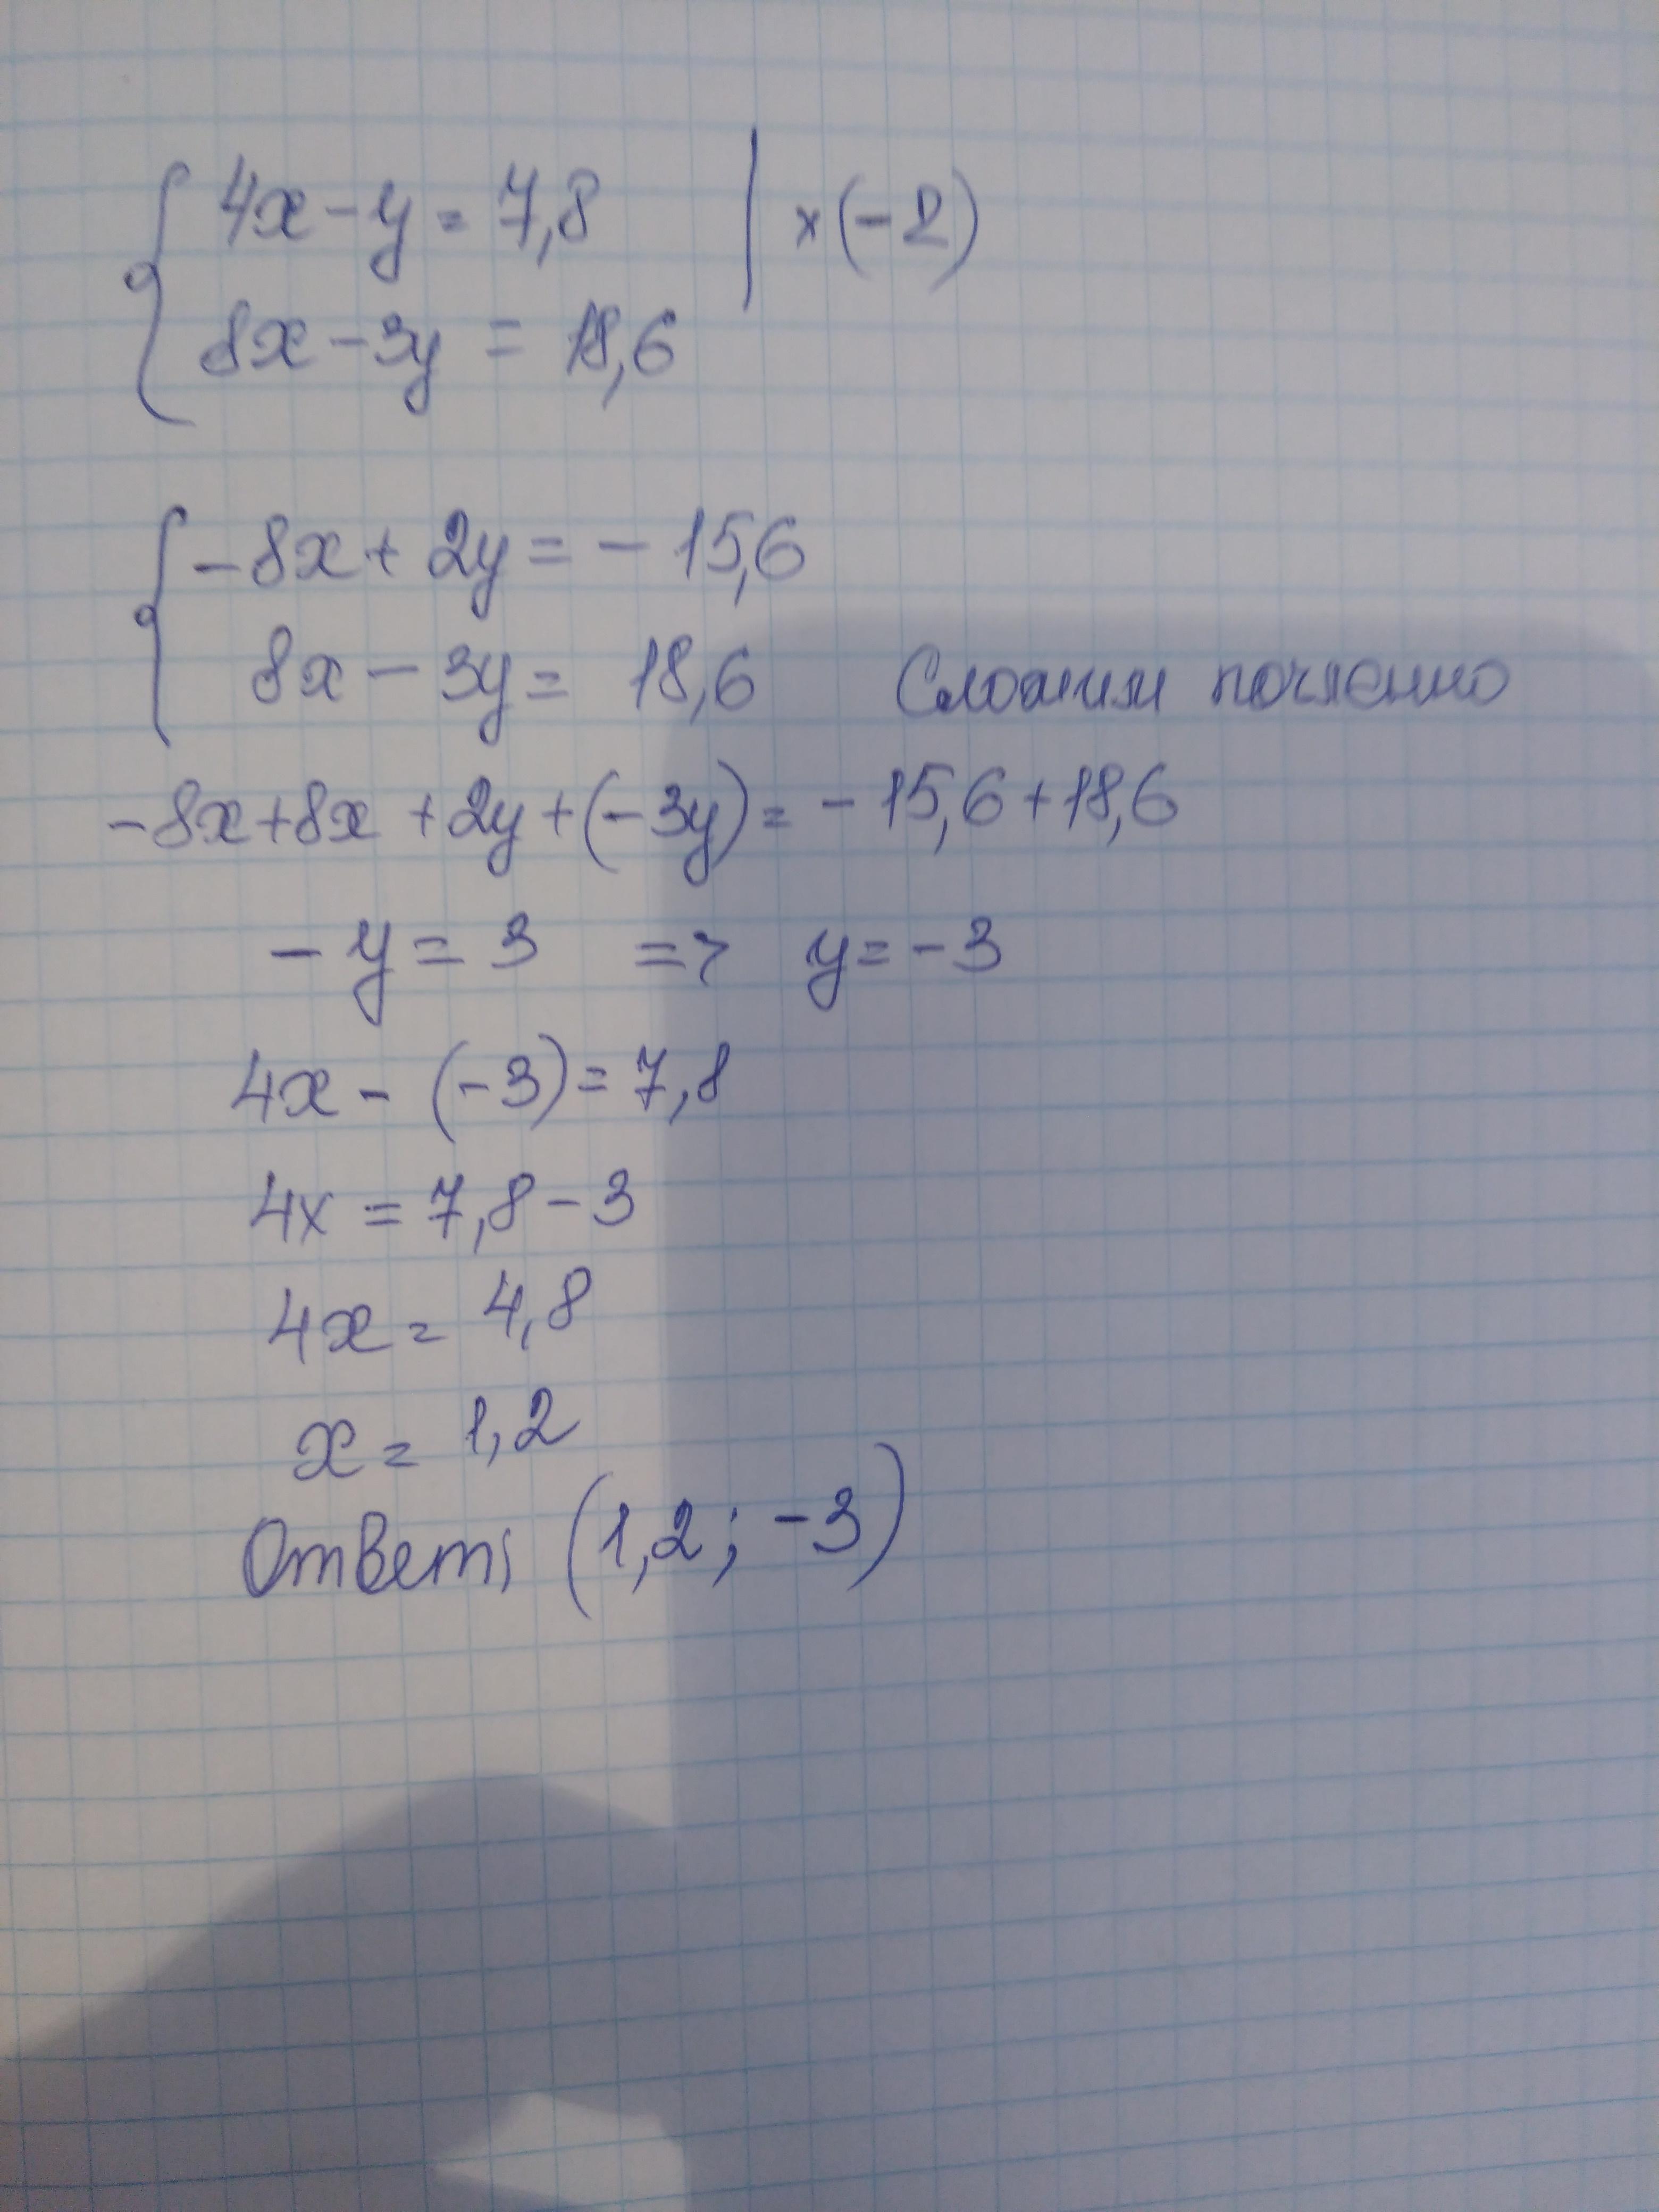 4x - y = 7,8 | × (-2)
8x - 3y = 18,6
-8x + 2y = - 15,6
8x - 3y = 18,6 Сложим почленно
-8x + 8x + 2y + (-3y) = - 15,6 + 18,6
- y = 3 => y = -3
4x - (-3) = 7,8
4x = 7,8 - 3
4x = 4,8
x = 1,2
Ответ: (1,2; -3)